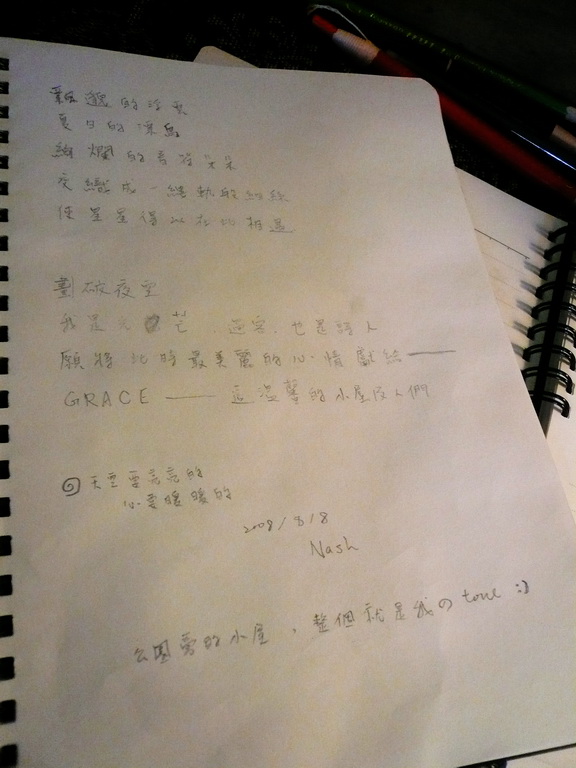 飄邈的浮雲
夏日的涼風
絢爛的香花朵朵
交織成一縷軌的細絲
使星星得以在此相遇
劃破夜空
我是光芒、過客、也是詩人
願將此時最美麗的心情獻給——
GRACE —— 這溫馨的小屋及人們
天空要亮亮的
心要暖暖的
2008/8/8
Nash
公園旁的小屋，整個就是我の tone :)